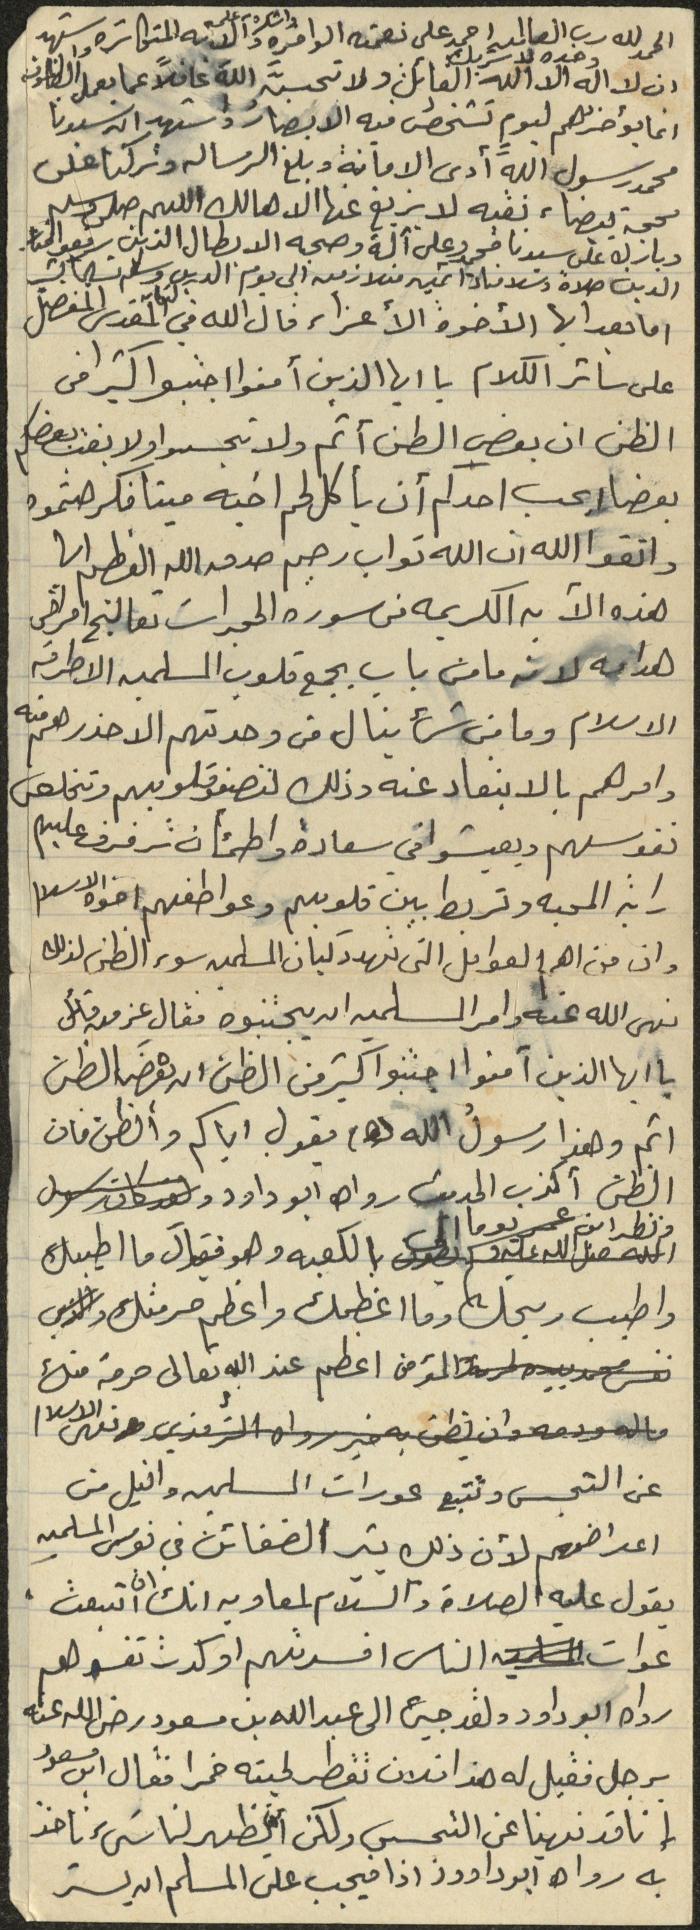 الحمد لله رب العالمين احمده على نعمته الوافرة واشكره على آلائه المتكاثرة واشهد
ان لا اله الا الله وحده لا شريك له القائل ولا تحسبنَّ اللهَ غافلاً عما يعمل الظالمون
انما يؤخرهم ليوم تشخصُ فيه الابصارُ واشهد ان سيدنا
محمد رسول اللهِ أدى الامانة وبلغ الرساله وتركنا على
محجة بيضاء نقيه لا يزيغ عنها الا هالك اللهم صلى وسلم
وبارك على سيدنا محمد وعلى آلة وصحبه الابطال الذين رفعوا
الدين صلاة وسلاما دائمين متلازمين الى يوم الدين وسلم تسليما
اما بعد ايها الأخوة الأعزاء قال الله في كتابه المقدس المفضل
على سائر الكلام يا ايها الذين أمنوا اجتنبوا كثيرا من
الظن ان بعض الظن أثم ولا تجسسوا ولا يغتب بعضكم
بعضا ايحب احدكم أن يأكل لحم اخيه ميتا فكرهتموه
واتقوا الله ان الله تواب رحيم صدق الله العظيم ايها
هذه الآيه الكريمه من سورة الحجرات تعالج امراض
هدامه لانه ما من باب يجمع قلوب المسلمين الا طرقه
الاسلام وما من شئ ينال من وحدتهم الا حذرهم منه
وامرهم بالابتعاد عنه وذلك لتصفو قلوبهم وتخلص
نفوسهم ويعيشوا في سعادة واطمئنان ترفرف عليهم
راية المحبه وتربط بين قلوبهم وعواطفهم اخوة الاسلام
وان من اهم العوامل التى تهدد كيان المسلمين سوء الظن لذلك
نهى الله عنه وامر المسلمين ان يجتنبوه فقال عز من قائل
يا ايها الذين آمنوا اجتنبوا كثير من الظن ان بعض الظن
اثم وهذا رسولُ الله (ص) يقول اياكم والظن فان
الظن أكذب الحديث رواه ابو داود ولقد كان رسول
ونظر ابن عمر يوما الى
الله صلى الله عليه وسلم يطوف بالكعبه وهو فقال ما اطيبك
واطيب ريحك وما اعظمك واعظم حرمتك والذي
نفس محمد بيده لحرمة المؤمن اعظم عند الله تعالى حرمة منك
ماله ودمه وان يظن به خير رواه الترمذي ونهى الاسلام
عن التجسس وتتبع عورات المسلمين والنيل من
اعراضهم لأن ذلك يثير الضغائن في نفوس المسلمين
يقول عليه الصلاة والسلام لمعاويه انك ان أتبعت
عوات المسلمين الناس افسدتهم او كدت تفسدهم
رواه ابو داود ولقد جيئ الى عبد الله بن مسعود رضى الله عنه
برجل فقيل له هذا فلان تقطر لحيته خمرا فقال ابن مسعودٍ
إنا قد نهينا عن التجسس ولكن أن يظهر لنا شىء ناخذ
به رواه ابو داوود اذا فيجب على المسلم ان يستر